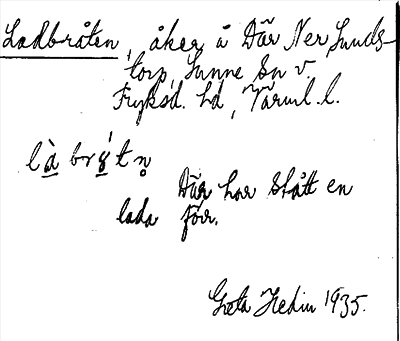 Ladbråten, åker å Där Ner, Sunds-
torp, Sunne sn v.
Fryksd. hd, Värml. l.
là brǿt n̥
Där har stått en
lada förr.
Greta Hedin 1935.